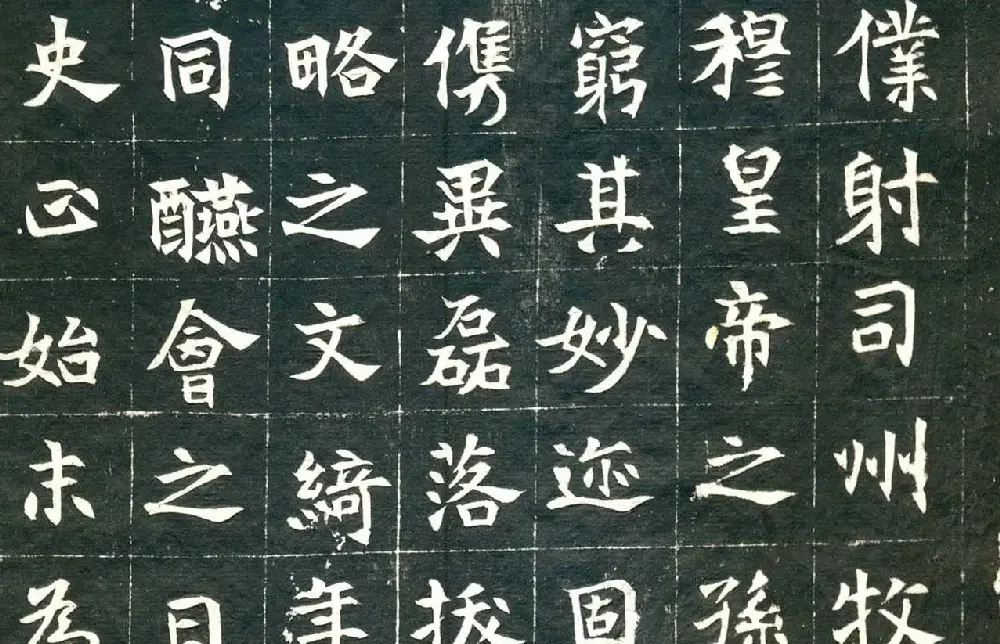 僕射司州牧
穆皇帝之孫
窮其妙迹固
儁異磊落拔
略之文綺年
同醼會之日
史正始末为